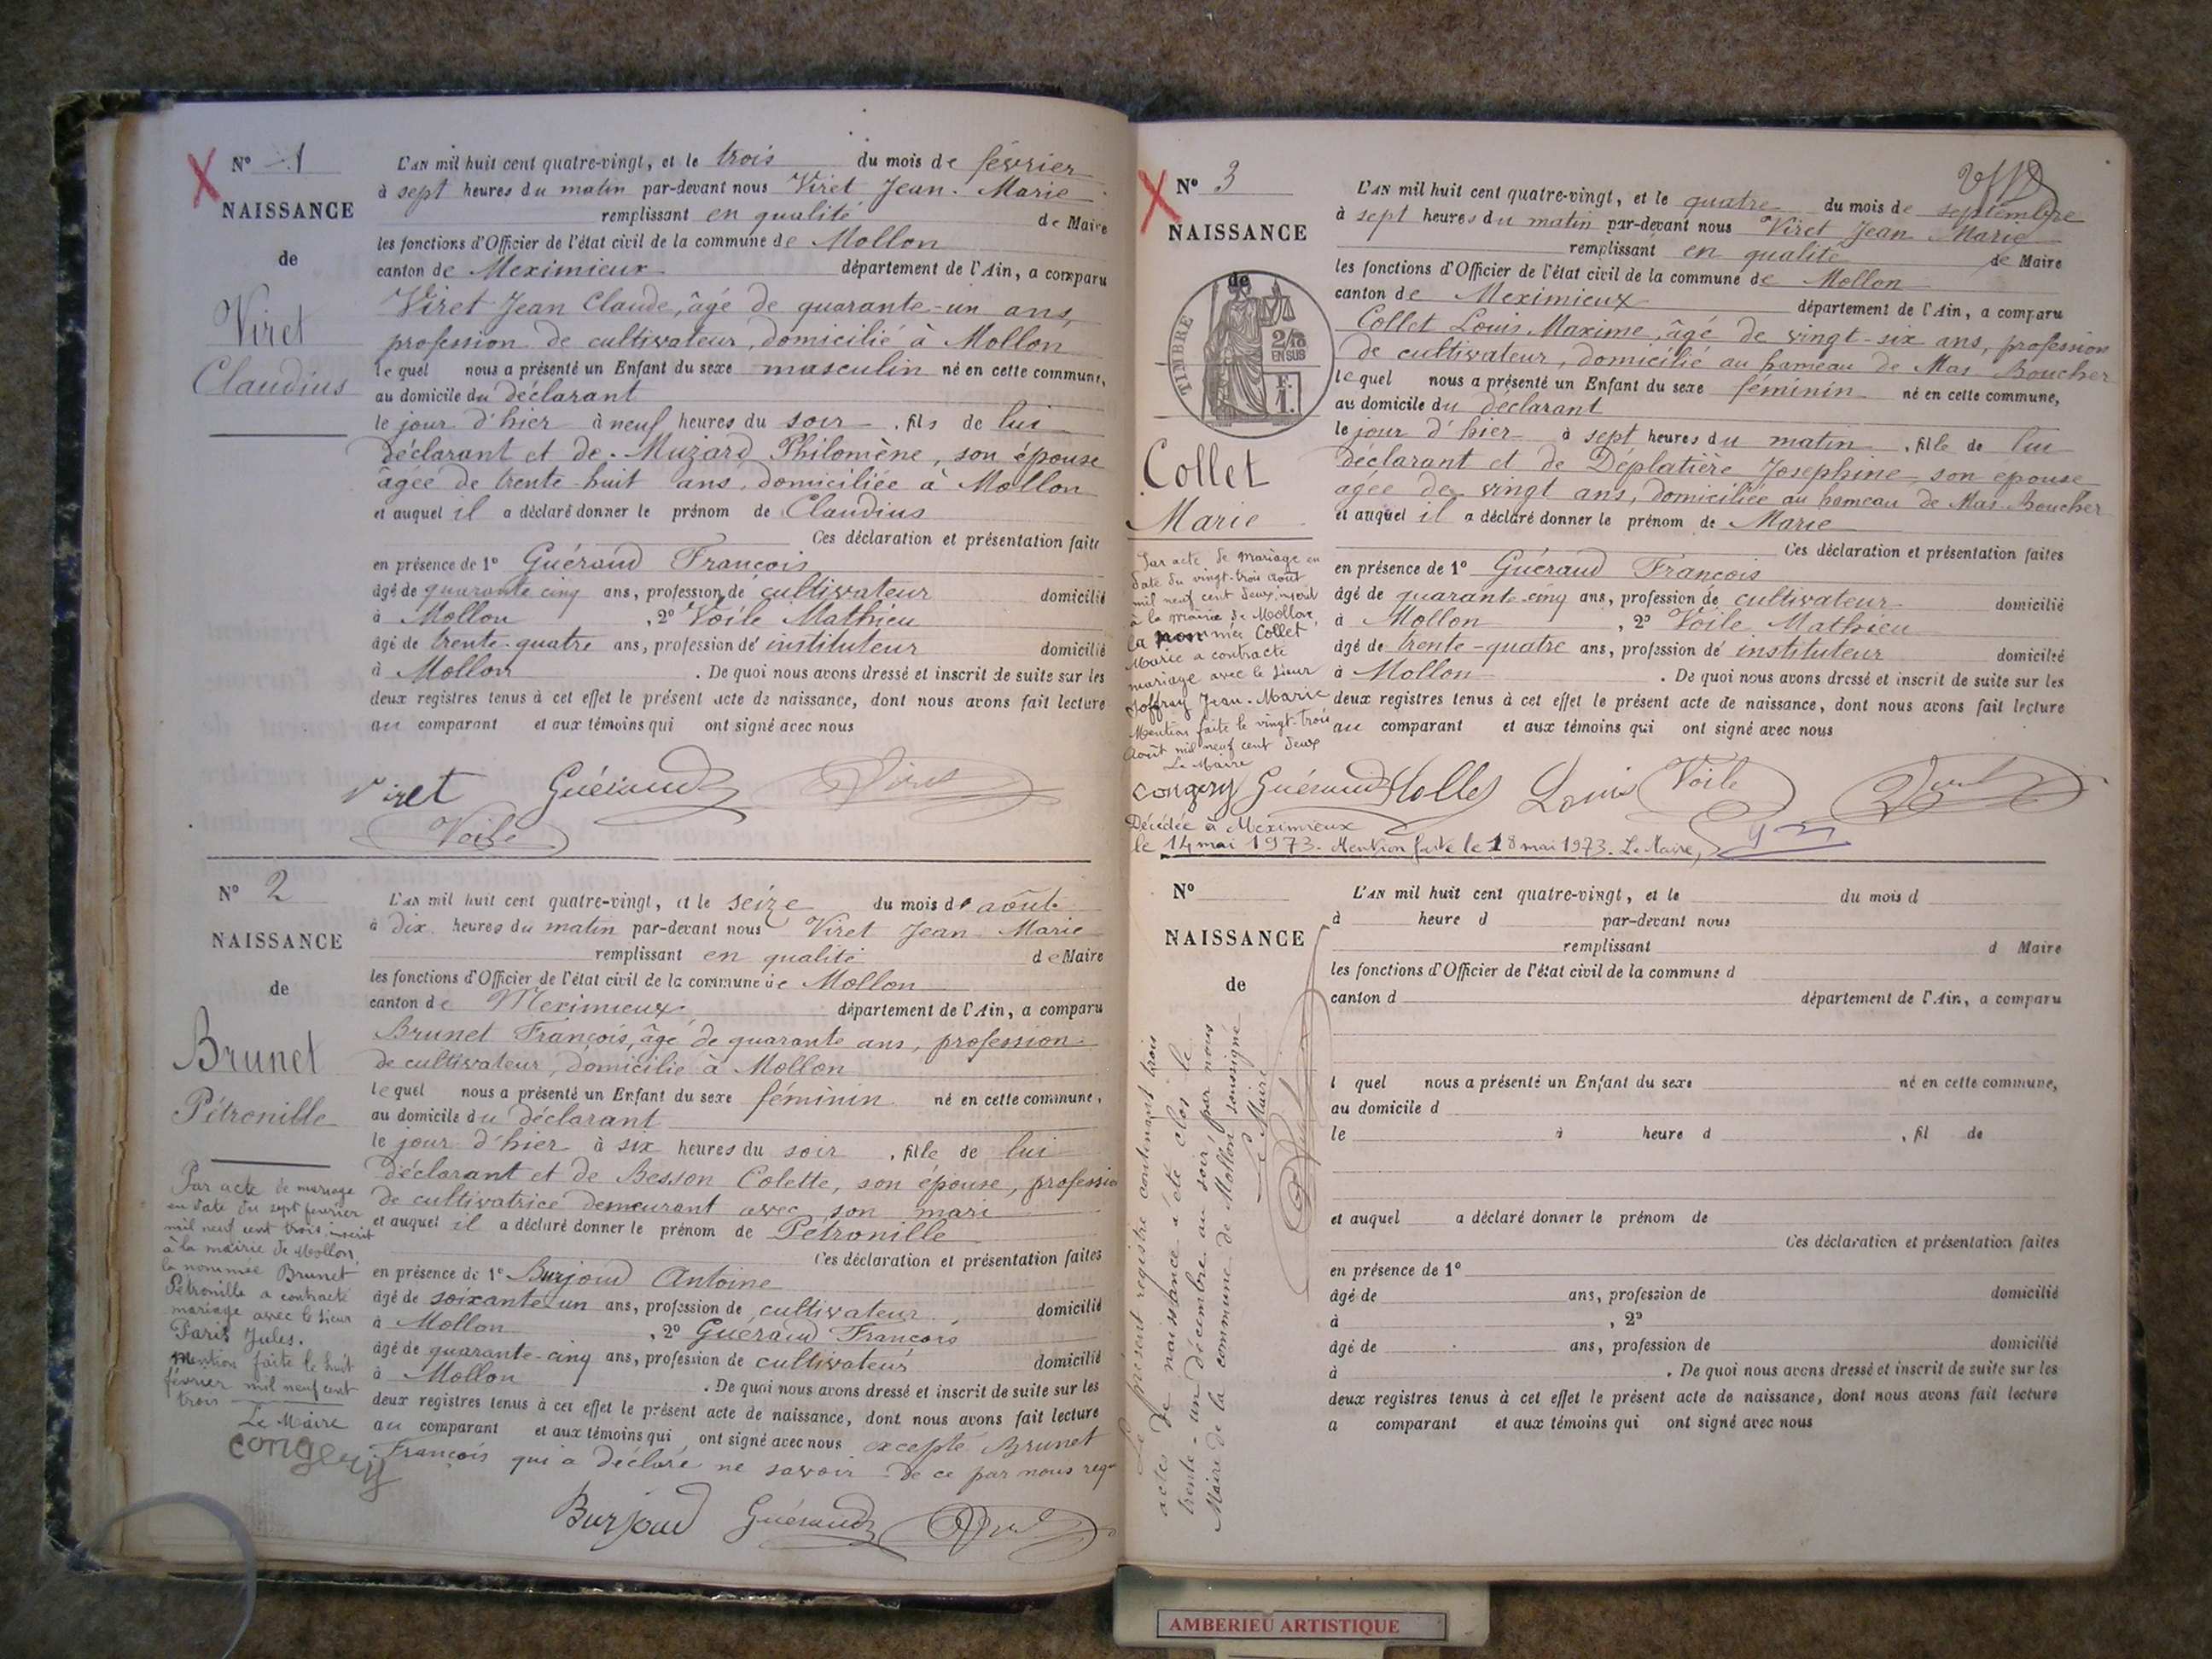 N° 1
NAISSANCE
de
Viret
Claudius
L'AN mil huit cent quatre-vingt, et le trois du mois de février
à sept heures du matin par-devant nous Viret Jean-Marie
remplissant en qualité de Maire
les fonctions d'Officier de l'état civil de la commune de Mollon
canton de Meximieux département de l'Ain, a comparu
Viret Jean Claude, âgé de quarante-un ans,
profession de cultivateur, domicilié à Mollon
lequel nous a présenté un Enfant du sexe masculin né en cette commune,
au domicile du déclarant
le jour d'hier à neuf heures du soir, fils de lui
déclarant et de Muzard Philomène, son épouse
âgée de trente-huit ans, domiciliée à Mollon
et auquel il a déclaré donner le prénom de Claudius
Ces déclaration et présentation faite
en présence de 1° Guéraud François
âgé de quarante cinq ans, profession de cultivateur domicilié
à Mollon, 2° Voile Mathieu
âgé de trente-quatre ans, profession de instituteur domicilié
à Mollon. De quoi nous avons dressé et inscrit de suite sur les
deux registres tenus à cet effet le présent acte de naissance, dont nous avons fait lecture
au comparant et aux témoins qui ont signé avec nous
Viret Guéraud Viret
Voile
N° 2
NAISSANCE
de
Brunet
Pétronille
Par acte de mariage
en date du sept fevrier
mil neuf cent trois, inscrit
à la mairie de Mollon,
la nommée Brunet
Pétronille a contracté
mariage avec le sieur
Paris Jules.
Mention faite le huit
février mil neuf cent
trois
Le Maire
Congery
L'AN mil huit cent quatre-vingt, et le seize du mois de août
à dix heures du matin par-devant nous Viret Jean Marie
remplissant en qualité de Maire
les fonctions d'Officier de l'état civil de la commune de Mollon
canton de Meximieux département de l'Ain, a comparu
Brunet François, âgé de quarante ans, profession
de cultivateur, domicilié à Mollon
lequel nous a présenté un Enfant du sexe féminin né en cette commune,
au domicile du déclarant
le jour d'hier à six heures du soir, fille de lui
déclarant et de Besson Colette, son épouse, professio
de cultivatrice demeurant avec son mari
et auquel il a déclaré donner le prénom de Pétronille
Ces déclaration et présentation faites
en présence de 1° Burjoud Antoine
âgé de soixante-un ans, profession de cultivateur domicilié
à Mollon, 2° Guéraud François
âgé de quarante-cinq ans, profession de cultivateur domicilié
à Mollon. De quoi nous avons dressé et inscrit de suite sur les
deux registres tenus à cet effet le présent acte de naissance, dont nous avons fait lecture
au comparant et aux témoins qui ont signé avec nous excepté Brunet
François qui a déclaré ne savoir de ce par nous req
Burjoud Guéraud Viret
N° 3
NAISSANCE
de
TIMBRE
2/10
EN SUS
F.
1.
Collet
Marie
Par acte de mariage en
date du vingt-trois août
mil neuf cent deux, inscrit
à la mairie de Mollon,
la nommée Collet
Marie a contracté
mariage avec le sieur
Joffray Jean-Marie
Mention faite le vingt-trois
Août mil neuf cent deux
Le Maire
Congery
L'AN mil huit cent quatre-vingt, et le quatre du mois de septembre
à sept heures du matin par-devant nous Viret Jean Marie
remplissant en qualité de Maire
les fonctions d'Officier de l'état civil de la commune de Mollon
canton de Meximieux département de l'Ain, a comparu
Collet Louis Maxime, âgé de vingt-six ans, profession
de cultivateur, domicilié au hameau de Mas Boucher
lequel nous a présenté un Enfant du sexe féminin né en cette commune,
au domicile du déclarant
le jour d'hier à sept heures du matin, fille de lui
déclarant et de Déplatière Josephine, son epouse
agée de vingt ans, domiciliée au hameau de Mas Boucher
et auquel il a déclaré donner le prénom de Marie
Ces déclaration et présentation faites
en présence de 1° Guéraud François
âgé de quarante-cinq ans, profession de cultivateur domicilié
à Mollon, 2° Voile Mathieu
âgé de trente-quatre ans, profession de instituteur domicilié
à Mollon. De quoi nous avons dressé et inscrit de suite sur les
deux registres tenus à cet effet le présent acte de naissance, dont nous avons fait lecture
au comparant et aux témoins qui ont signé avec nous
Guéraud Louis Voile Viret
Décédée à Meximieux
le 14 mai 1973. Mention faite le 18 mai 1973. Le Maire,
N°
NAISSANCE
de
Le présent registre contenant trois
actes de naissance a été clos le
trente-un décembre au soir par nous
Maire de la commune de Mollon soussigné
Le Maire
L'AN mil huit cent quatre-vingt, et le du mois d
à heure d par-devant nous
remplissant d Maire
les fonctions d'Officier de l'état civil de la commune d
canton d département de l'Ain, a comparu
l quel nous a présenté un Enfant du sexe né en cette commune,
au domicile d
le à heure d , fil de
et auquel a déclaré donner le prénom de
Ces déclaration et présentation faites
en présence de 1°
âgé de ans, profession de domicilié
à , 2°
âgé de ans, profession de domicilié
à . De quoi nous avons dressé et inscrit de suite sur les
deux registres tenus à cet effet le présent acte de naissance, dont nous avons fait lecture
a comparant et aux témoins qui ont signé avec nous
AMBERIEU ARTISTIQUE